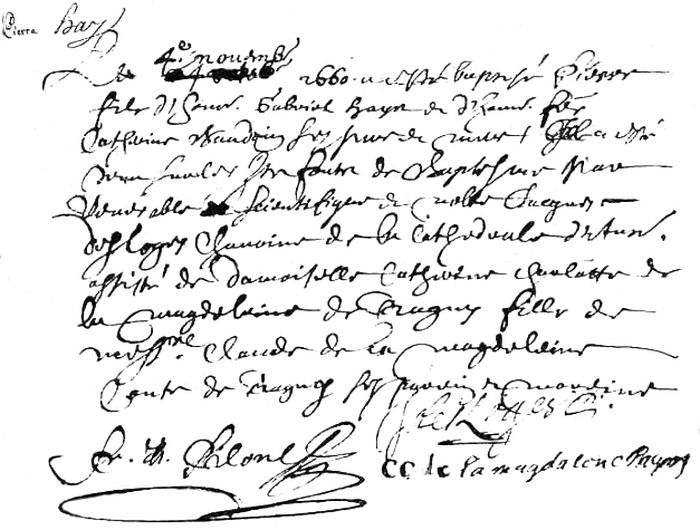 Pierre Bays
Le 4e. novembre 1660 a esté baptisé Pierre
fils d'honn. Gabriel Bays et d'honn. fee
Catherine ses pere et mere Il a esté
tenu sur les fonts de Baptesme par
Venerable et scientifique et noble Jacques
desloges Chanoine de la Cathedrale d'Autun.
assisté de Damoiselle Catherine Charlotte de
la Magdelaine de Ragny fille de
mess.re Claude de La Magdelaine
Conte de Ragny ses parain et maraine
CC de la magdalene Ragny